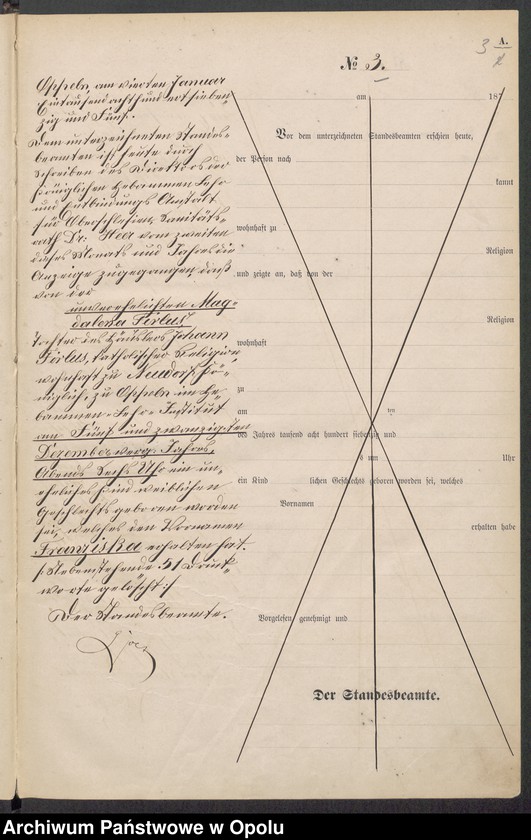 A.
3
№ 3.
Oppeln, am vierten Januar
Eintausend achthundert sieben-
zig und Fünf.
Dem unterzeichneten Standes-
beamten ist heute durch
Schreiben des Direktors der
Königlichen Hebammen-Lehr
und Entbindungs Anstalt
für Oberschlesien, Sanitäts-
rath Dr. vom zweiten
dieses Monats und Jahres die
Anzeige zugegangen, daß
von der
unverehelichten Mag-
dalena Pirlus,
Tochter des Häuslers Johann
Pirlus, katholischer Religion,
wohnhaft zu Neudorf, Kö-
niglich, zu Oppeln im He-
bammen-Lehr-Institut
am Fünf und zwanzigsten
Dezember vorig. Jahres,
Abends Sechs Uhr ein un-
eheliches Kind weiblichen
Geschlechts geboren worden
sei, welches den Vornamen
Franziska erhalten hat.
/: Nebenstehende 51 Druck-
worte gelöscht :/
Der Standesbeamte.
am 187
Vor dem unterzeichneten Standesbeamten erschien heute,
der Person nach
kannt
wohnhaft zu
Religion
und zeigte an, daß von der
Religion
wohnhaft
zu
am ten
des Jahres tausend acht hundert siebenzig und
um Uhr
ein Kind lichen Geschlechts geboren worden sei, welches
Vornamen
erhalten habe
Vorgelesen, genehmigt und
Der Standesbeamte.
Archiwum Państwowe w Opolu